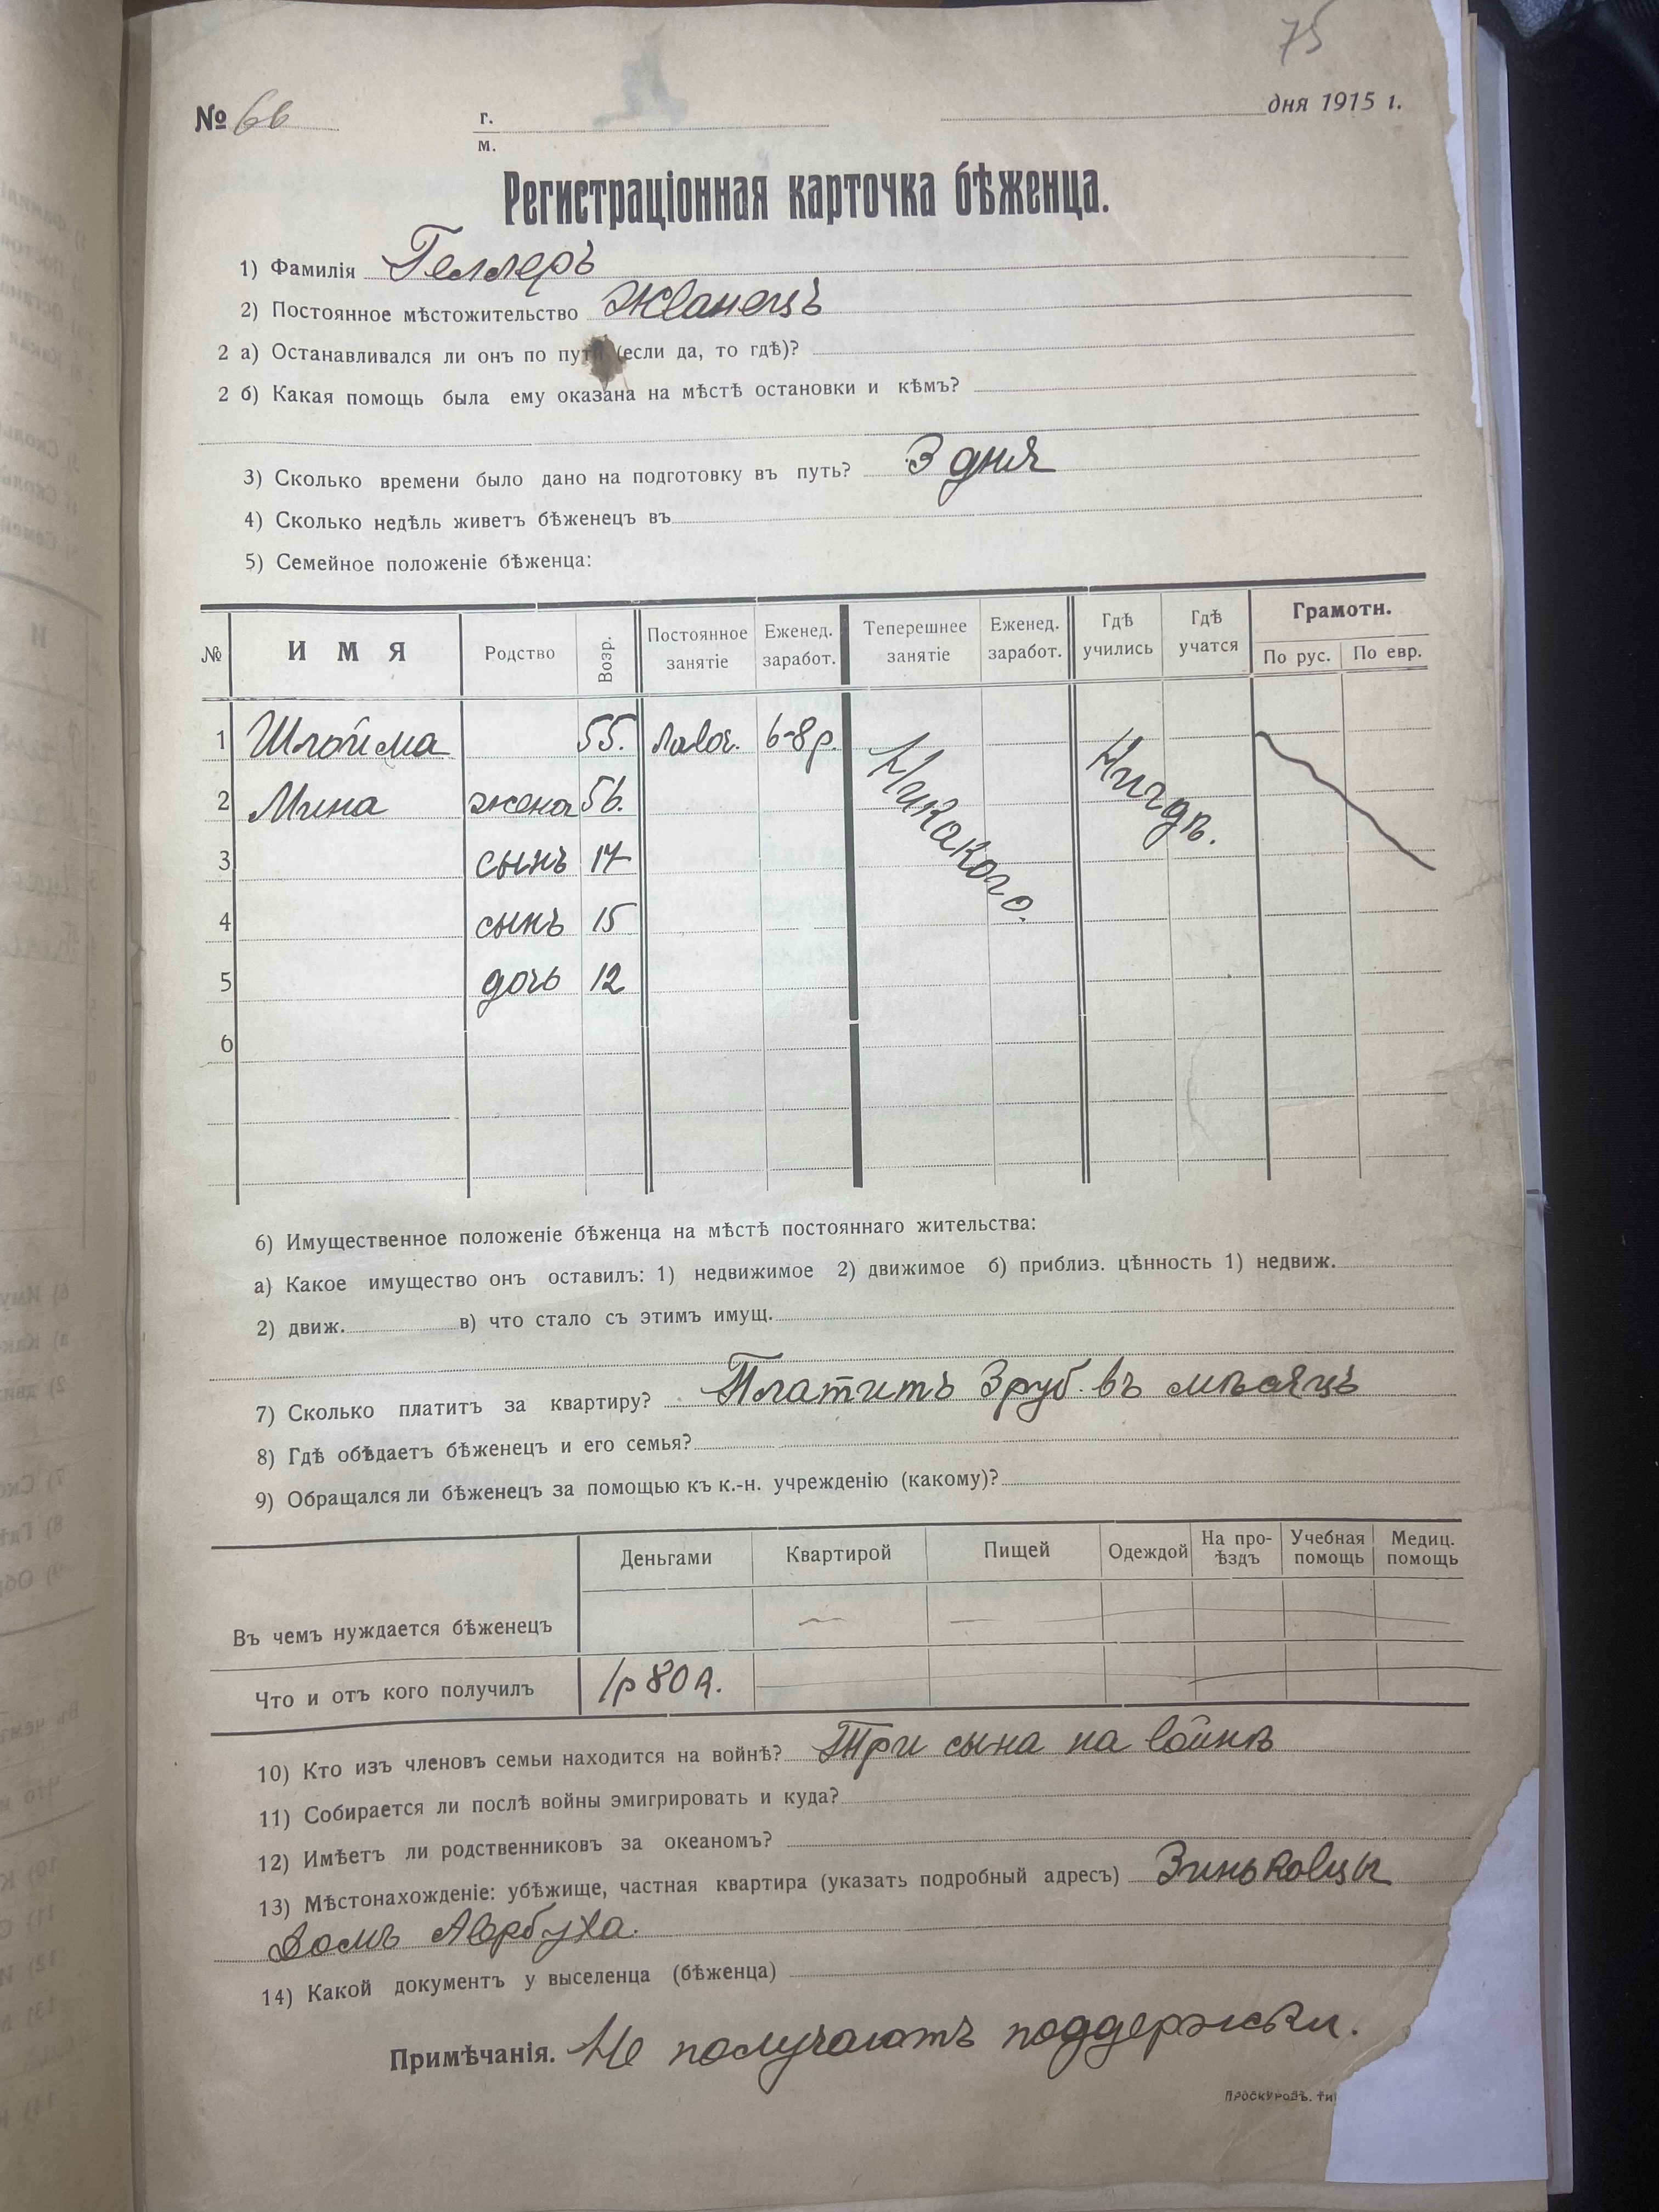 75
№ 66 г. дня 1915 г.
м.
Регистраціонная карточка бѣженца.
1) Фамилія Геллеръ
2) Постоянное мѣстожительство Жванецъ
2 а) Останавливался ли онъ по пути (если да, то гдѣ)?
2 б) Какая помощь была ему оказана на мѣстѣ остановки и кѣмъ?
3) Сколько времени было дано на подготовку въ путь? 3 дня
4) Сколько недѣль живетъ бѣженецъ въ
5) Семейное положеніе бѣженца:
№ ИМЯ Родство Возр. Постоянное занятіе Еженед. заработ. Теперешнее занятіе Еженед. заработ. Гдѣ учились Гдѣ учатся Грамотн. По рус. По евр.
1 Шлойма 55. лавоч. 6-8 р. Никакого. Нигдѣ.
2 Мина жена 56.
3 сынъ 17
4 сынъ 15
5 дочь 12
6
6) Имущественное положеніе бѣженца на мѣстѣ постояннаго жительства:
а) Какое имущество онъ оставилъ: 1) недвижимое 2) движимое б) приблиз. цѣнность 1) недвиж.
2) движ. в) что стало съ этимъ имущ.
7) Сколько платитъ за квартиру? Платитъ 3 руб. въ мѣсяцъ
8) Гдѣ обѣдаетъ бѣженецъ и его семья?
9) Обращался ли бѣженецъ за помощью къ к.-н. учрежденію (какому)?
Деньгами Квартирой Пищей Одеждой На про-ѣздъ Учебная помощь Медиц. помощь
Въ чемъ нуждается бѣженецъ
Что и отъ кого получилъ 1 р 80 к.
10) Кто изъ членовъ семьи находится на войнѣ? Три сына на войнѣ
11) Собирается ли послѣ войны эмигрировать и куда?
12) Имѣетъ ли родственниковъ за океаномъ?
13) Мѣстонахожденіе: убѣжище, частная квартира (указать подробный адресъ) Зиньковцы
Домъ Авербуха.
14) Какой документъ у выселенца (бѣженца)
Примѣчанія. Не получаютъ поддержки.
ПРОСКУРОВЪ. ТИ